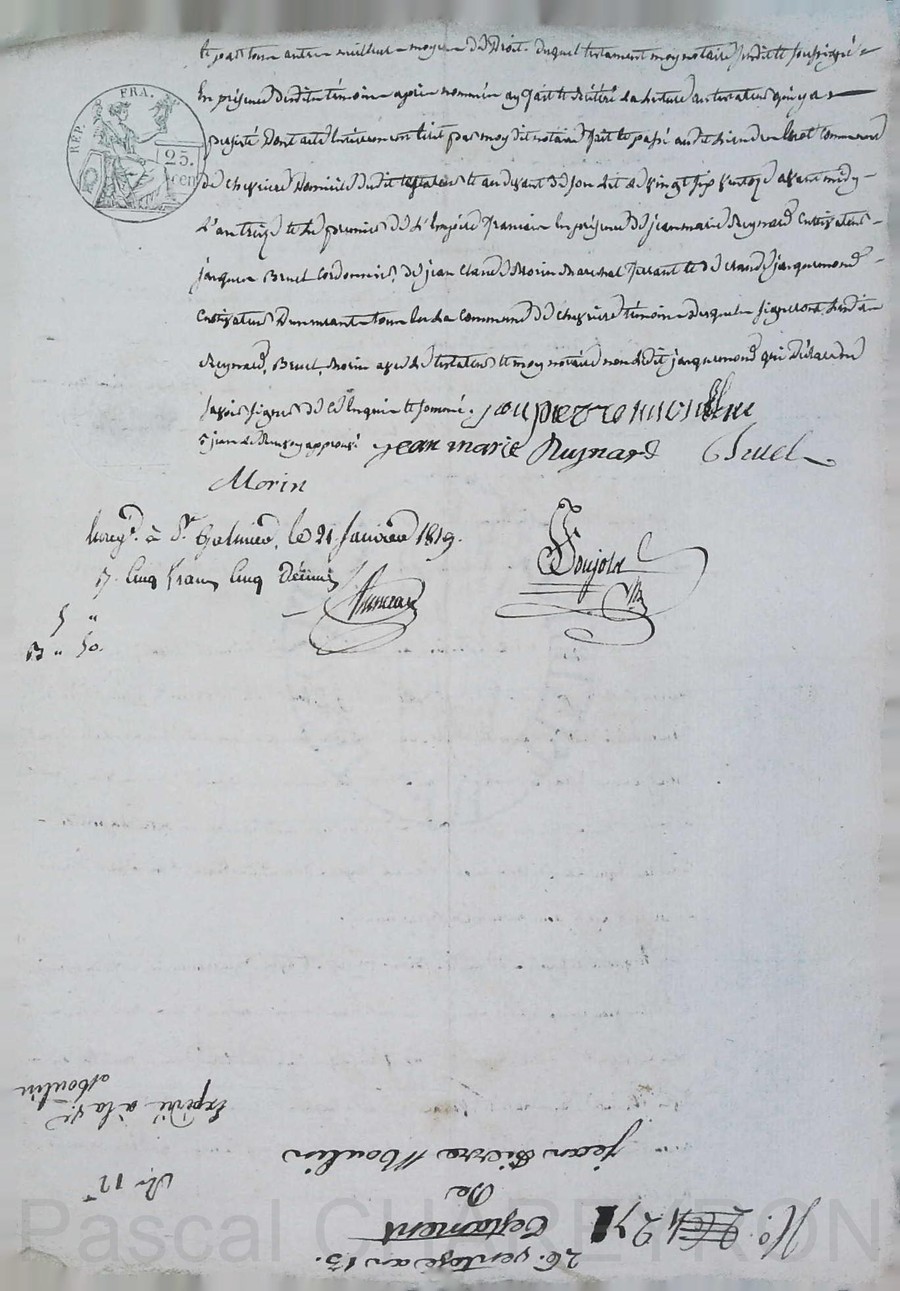 et par tout autre meilleur moyen de Droit. duquel testament moy notaire susdit et soussigné
En présence desdits témoins après nommés ay fait et réitéré la lecture au testateur qui y a
persisté Dont acte fait et passé au dit lieu commune
de chevrieres Domicile dudit testateur et au devant de son lit le vingt six ventose avant midy
L'an treize et le premier de L'Empire français En présence de jean marie Reynard Cultivateur
jacques Bruel Cordonnier, de jean Claude Morin Marechal ferrant et de Claude jacquemond
Cultivateur Demeurant tous en la Commune de chevrieres témoins Lesquels
Reynard, Bruel, Morin avec le testateur et moy notaire non ledit jacquemond qui a déclaré ne
savoir signer de ce Enquis et sommé. jean pierre moulin
approuvé jean marie Reynard Bruel
Morin
Enreg.é à S.t Galmier, le 21 Janvier 1819.
Cinq francs Cinq Décimes
5 "
" 50.
REP. FRA.
25.
cen
Expédié à la v.e
Moulin
An 13
26 ventose an 13.
Testament
De
jean Pierre Moulin
N.o 264 271
Pascal CHAREYRON